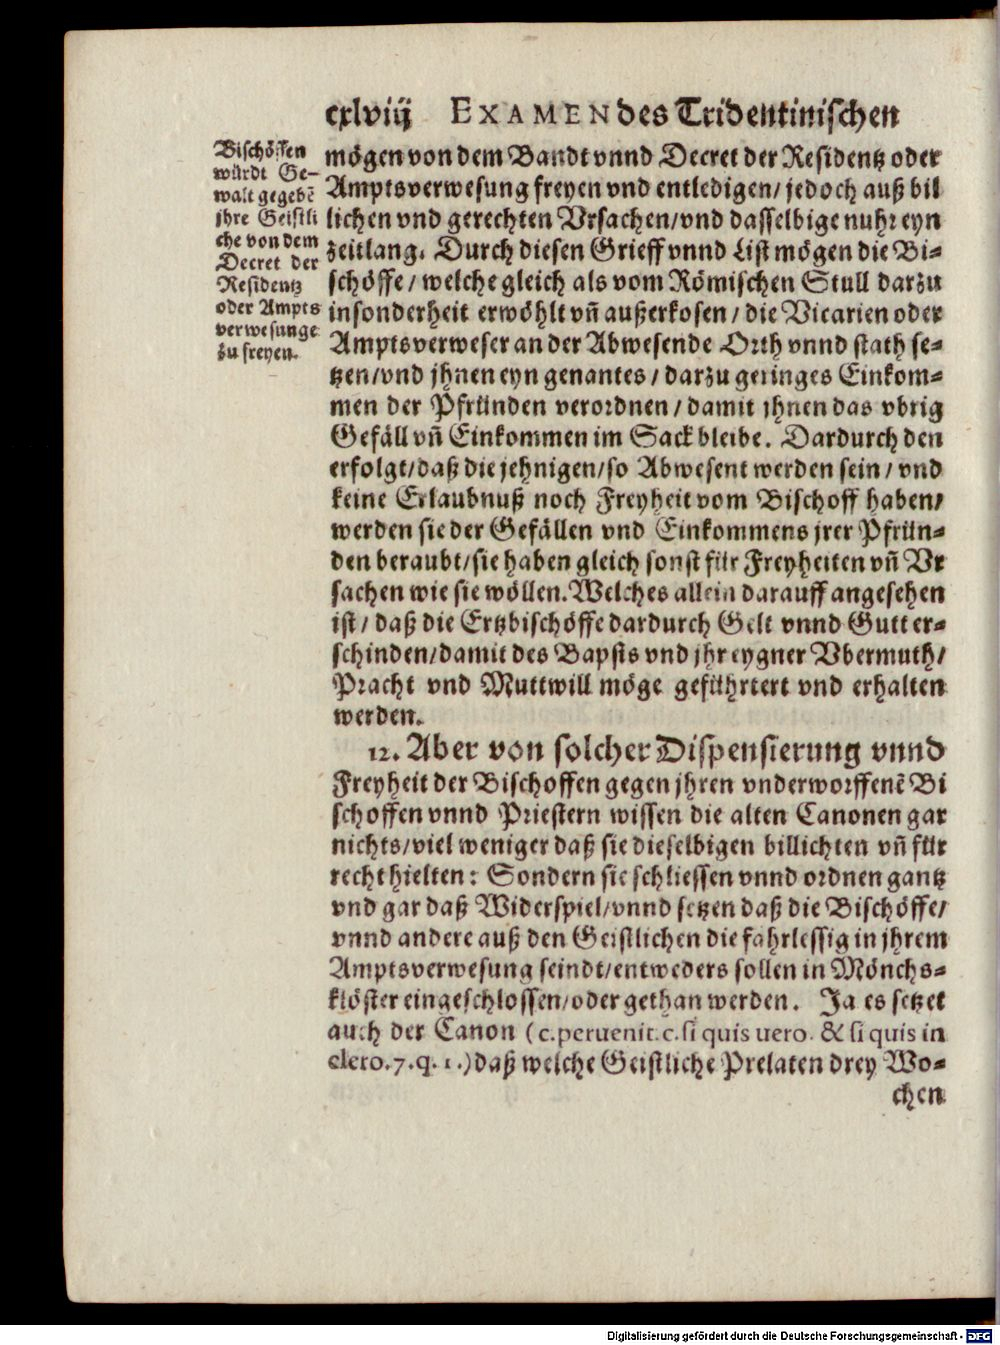 cxlviij EXAMEN des Tridentinischen
Bischöffen
würdt Ge-
walt gegebẽ
jhre Geistli
che von dem
Decret der
Residentz
oder Ampts
verwesunge
zu freyen.
mögen von dem Bandt vnnd Decret der Residentz oder
Amptsverwesung freyen vnd entledigen/ jedoch auß bil
lichen vnd gerechten Vrsachen/ vnd dasselbige nuhr eyn
zeitlang. Durch diesen Grieff vnnd List mögen die Bi-
schöffe/ welche gleich als vom Römischen Stull darzu
insonderheit erwöhlt vñ außerkosen/ die Vicarien oder
Amptsverweser an der Abwesende Orth vnnd stath se-
tzen/ vnd jhnen eyn genantes/ darzu geringes Einkom-
men der Pfründen verordnen/ damit jhnen das vbrig
Gefäll vñ Einkommen im Sack bleibe. Dardurch den
erfolgt/ daß die jehnigen/ so Abwesent werden sein/ vnd
keine Erlaubnuß noch Freyheit vom Bischoff haben/
werden sie der Gefällen vnd Einkommens jrer Pfrün-
den beraubt/ sie haben gleich sonst für Freyheiten vñ Vr
sachen wie sie wöllen. Welches allein darauff angesehen
ist/ daß die Ertzbischöffe dardurch Gelt vnnd Gutt er-
schinden/ damit des Bapsts vnd jhr eygner Vbermuth/
Pracht vnd Muttwill möge geführtert vnd erhalten
werden.
12. Aber von solcher Dispensierung vnnd
Freyheit der Bischoffen gegen jhren vnderworffenẽ Bi
schoffen vnnd Priestern wissen die alten Canonen gar
nichts/ viel weniger daß sie dieselbigen billichten vñ für
recht hielten: Sondern sie schliessen vnnd ordnen gantz
vnd gar daß Widerspiel/ vnnd setzen daß die Bischöffe/
vnnd andere auß den Geistlichen die fahrlessig in jhrem
Amptsverwesung seindt/ entweders sollen in Mönchs-
klöster eingeschlossen/ oder gethan werden. Ja es setzet
auch der Canon (c. peruenit. c. si quis uero. & si quis in
clero. 7. q. 1.) daß welche Geistliche Prelaten drey Wo-
chen
Digitalisierung gefördert durch die Deutsche Forschungsgemeinschaft - DFG